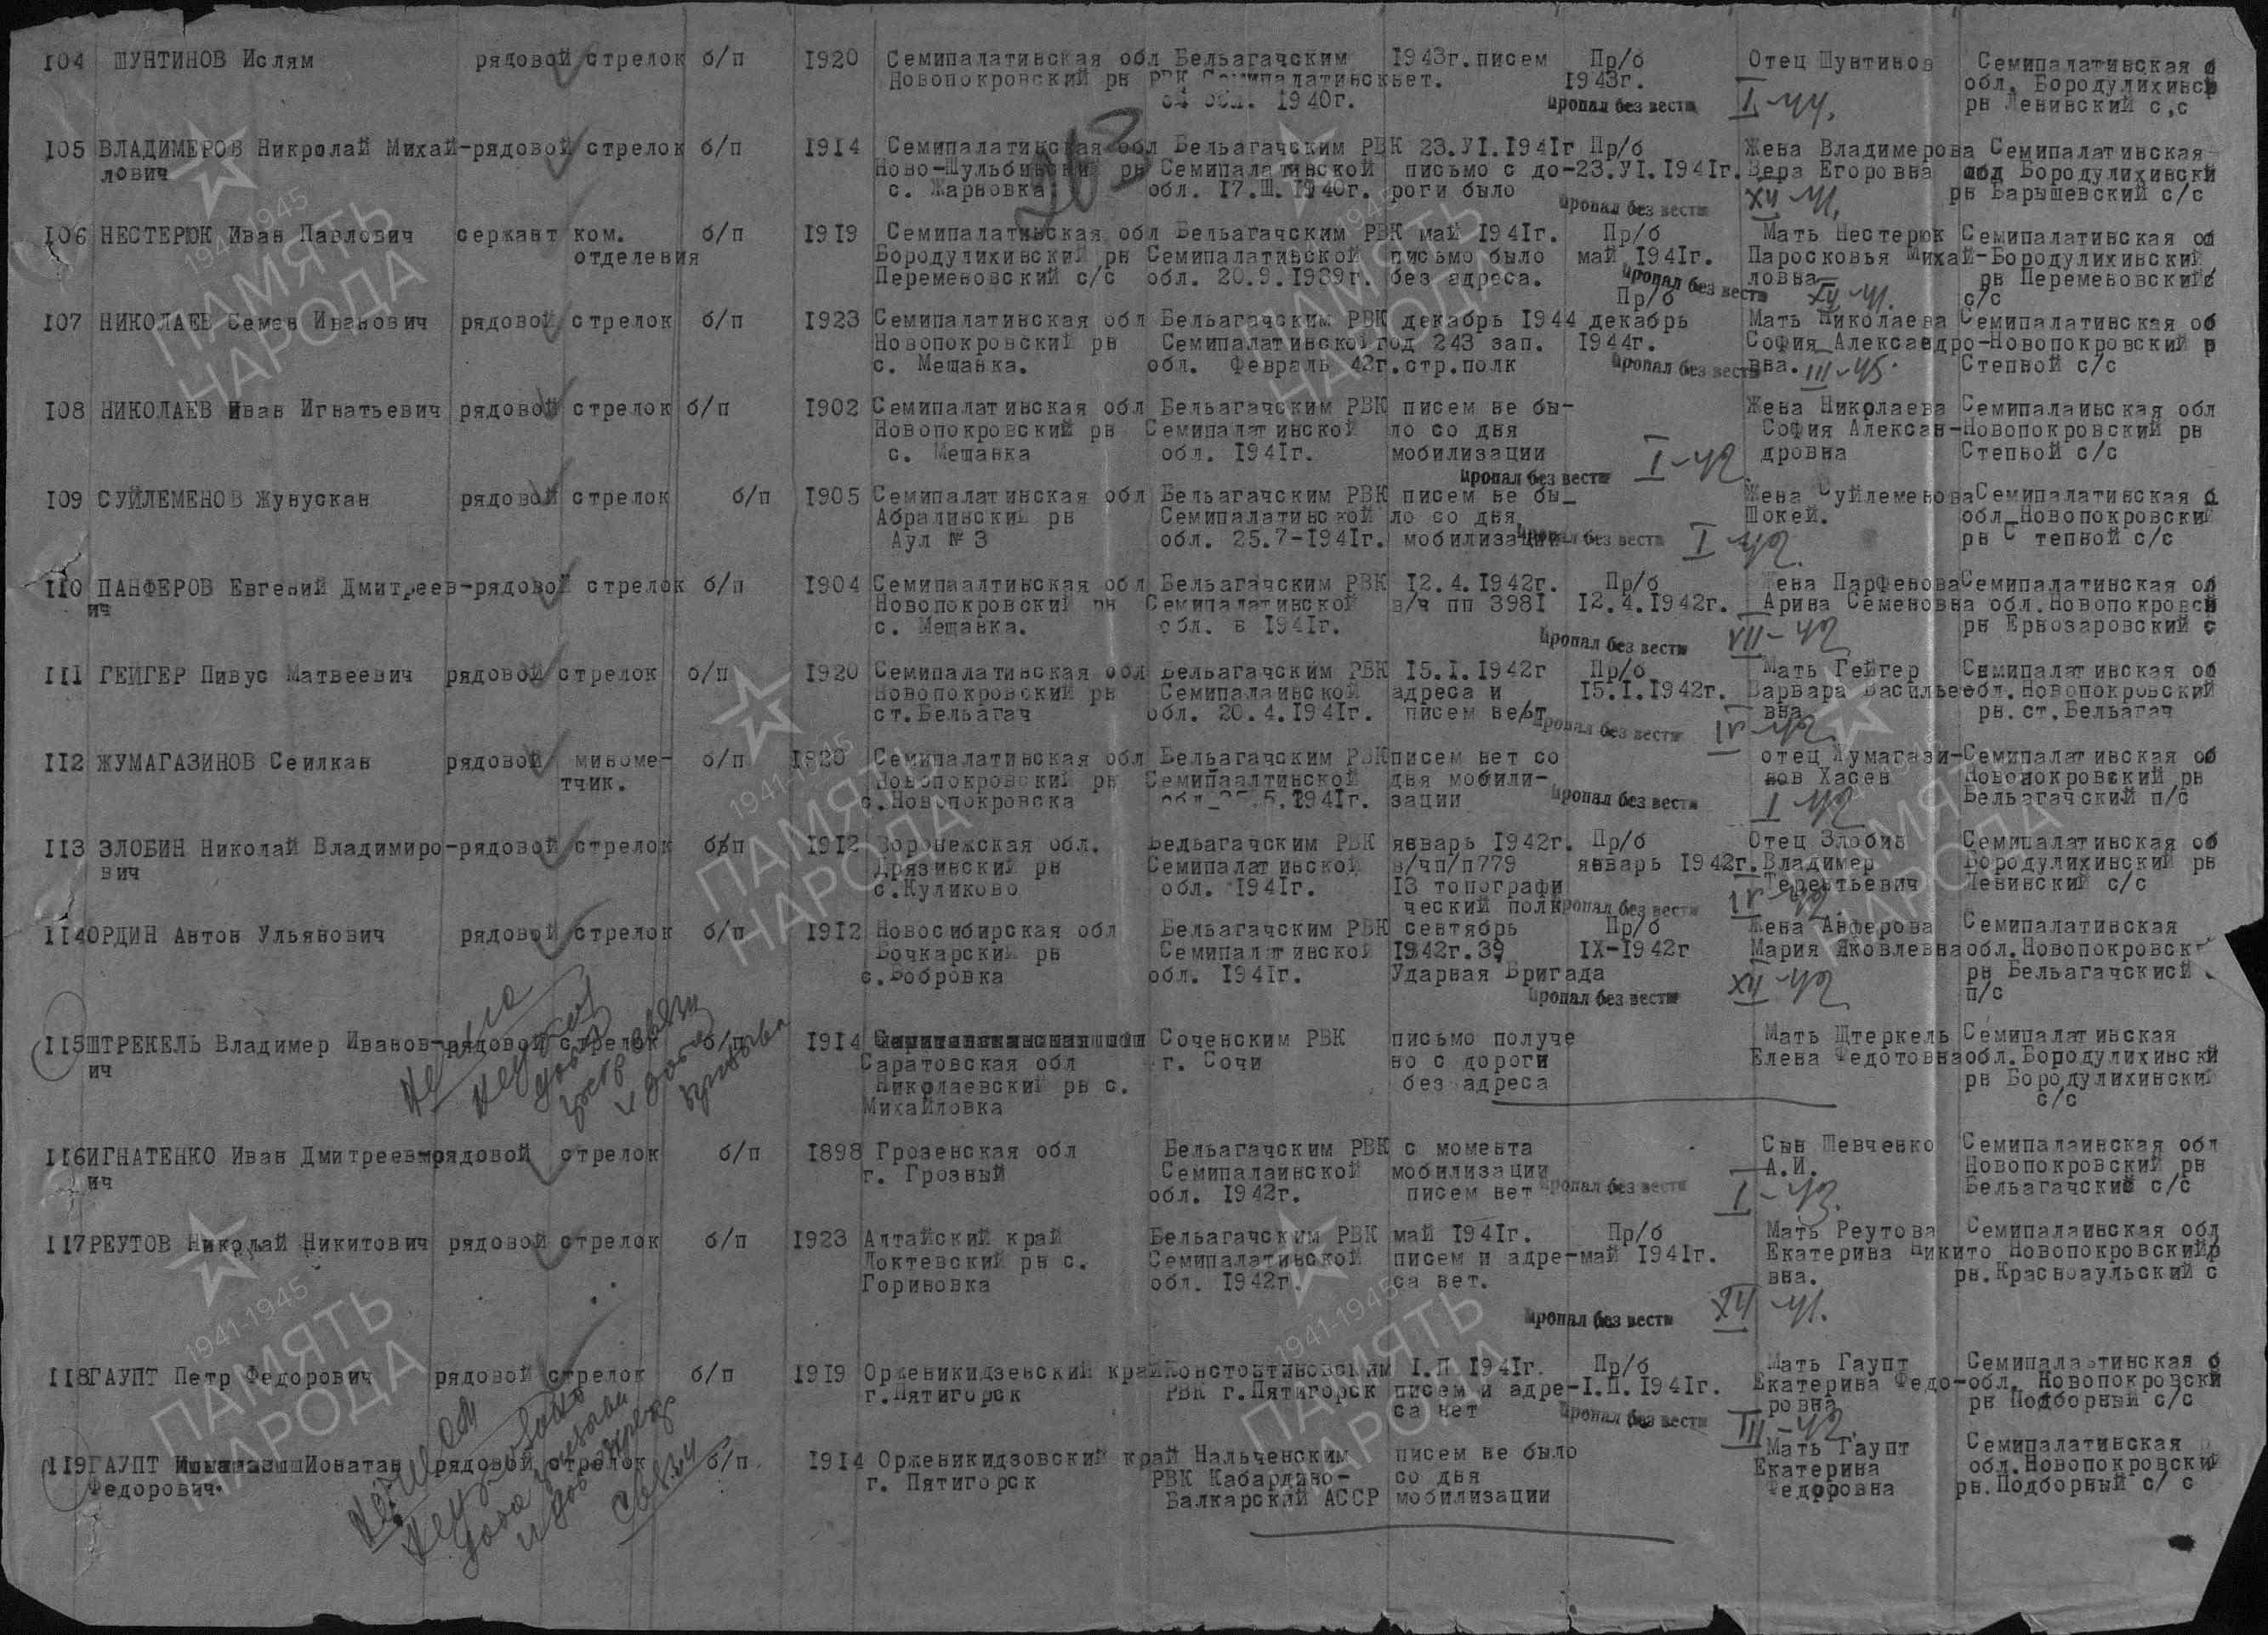 104 ШУНТИНОВ Ислям рядовой стрелок б/п 1920 Семипалатинская обл Бельагачским 1943г. писем Пр/б Отец Шунтинов Семипалатинская
Новопокровский рн РВК Семипалатинск нет. 1943г. обл. Бородулихинск
обл. 1940г. пропал без вести I-44. рн Ленинский с,с
105 ВЛАДИМЕРОВ Никролай Михай-рядовой стрелок б/п 1914 Семипалатинская обл Бельагачским РВК 23.УI.1941г Пр/б Жена Владимерова Семипалатинская
лович Ново-Шульбинский рн Семипалатинской письмо с до-23.УI.1941г. Вера Егоровна обл Бородулихински
с. Жарновка обл. 17.Ш.1940г. роги было пропал без вести XII-41. рн Барышевский с/с
106 НЕСТЕРЮК Иван Павлович сержант ком. б/п 1919 Семипалатинская обл Бельагачским РВК май 1941г. Пр/б Мать Нестерюк Семипалатинская об
отделения Бородулихинский рн Семипалатинской письмо было май 1941г. Паросковья Михай-Бородулихинский
Переменовский с/с обл. 20.9.1939г. без адреса. пропал без вести ловна XII-41. рн Переменовский
Пр/б с/с
107 НИКОЛАЕВ Семен Иванович рядовой стрелок б/п 1923 Семипалатинская обл Бельагачским РВК декабрь 1944 декабрь Мать Николаева Семипалатинская об
Новопокровский рн Семипалатинской год 243 зап. 1944г. София Алексаедро-Новопокровский р
с. Мещанка. обл. Февраль 42г. стр.полк пропал без вести вна. III-45. Степной с/с
108 НИКОЛАЕВ Иван Игнатьевич рядовой стрелок б/п 1902 Семипалатинская обл Бельагачским РВК писем не бы- Жена Николаева Семипалаинская обл
Новопокровский рн Семипалатинской ло со дня София Алексан-Новопокровский рн
с. Мещанка обл. 1941г. мобилизации дровна Степной с/с
пропал без вести I-42
109 СУЙЛЕМЕНОВ Жунускан рядовой стрелок б/п 1905 Семипалатинская обл Бельагачским РВК писем не бы_ Жена Суйлеменова Семипалатинская
Абралинский рн Семипалатинской ло со дня Шокей. обл_Новопокровский
Аул № 3 обл. 25.7-1941г. мобилизации пропал без вести I-42. рн С тепной с/с
110 ПАНФЕРОВ Евгений Дмитреев-рядовой стрелок б/п 1904 Семипаалтинская обл Бельагачским РВК 12.4.1942г. Пр/б Жена Парфенова Семипалатинская об
ич Новопокровский рн Семипалатинской в/ч пп 3981 12.4.1942г. Арина Семеновна обл.Новопокровск
с. Мещанка. обл. в 1941г. пропал без вести VII-42 рн Ернозаровский с
111 ГЕЙГЕР Пивус Матвеевич рядовой стрелок б/п 1920 Семипалатинская обл Бельагачским РВК 15.I.1942г Пр/б Мать Гейгер Симипалатинская об
Новопокровский рн Семипалаинской адреса и 15.I.1942г. Варвара Василье обл.Новопокровский
ст.Бельагач обл. 20.4.1941г. писем нет пропал без вести вна IV-42. рн.ст.Бельагач
112 ЖУМАГАЗИНОВ Сеилкан рядовой миноме- б/п 1920 Семипалатинская обл Бельагачским РВК писем нет со отец Жумагази-Семипалатинская об
тчик. Новопокровский рн Семипаалтинской дня мобили- нов Хасен Новопокровский рн
с.Новопокровска .5.1941г. зации пропал без вести I-42 Бельагачский п/с
113 ЗЛОБИН Николай Владимиро-рядовой стрелок б/п 1912 Воронежская обл. Бельагачским РВК январь 1942г. Пр/б Отец Злобин Семипалатинская об
вич Дрязинский рн Семипалатинской в/чп/п779 январь 1942г. Владимер Бородулихинский рн
с.Куликово обл. 1941г. 13 топографи Терентьевич Ленинский с/с
ческий полк пропал без вести IV-42.
114 ОРДИН Антон Ульянович рядовой стрелок б/п 1912 Новосибирская обл Бельагачским РВК сентябрь Пр/б Жена Анферова Семипалатинская
Бочкарский рн Семипалатинской 1942г.39 IX-1942г Мария Яковлевна обл.Новопокровск
с.Бобровка обл. 1941г. Ударная Бригада рн Бельагачскисй
пропал без вести XII-42 п/с
115 ШТРЕКЕЛЬ Владимер Иванов-рядовой стрелок б/п 1914 Соченским РВК письмо получе Мать Штеркель Семипалатинская
ич Саратовская обл г. Сочи но с дороги Елена Федотовна обл.Бородулихински
Николаевский рн с. без адреса рн Бородулихинский
Михайловка с/с
116 ИГНАТЕНКО Иван Дмитреев рядовой стрелок б/п 1898 Грозенская обл Бельагачским РВК с момента Сын Шевченко Семипалаинская обл
ич г. Грозный Семипалаинской мобилизации А.И. Новопокровский рн
обл. 1942г. писем нет пропал без вести I-43. Бельагачский с/с
117 РЕУТОВ Николай Никитович рядовой стрелок б/п 1923 Алтайский край Бельагачским РВК май 1941г. Пр/б Мать Реутова Семипалаинская обл
Локтевский рн с. Семипалатинской писем и адре-май 1941г. Екатерина Никито Новопокровский
Гориновка обл. 1942г. са нет. вна. рн.Красноаульский с
пропал без вести XII-41.
118 ГАУПТ Петр Федорович рядовой стрелок б/п 1919 Орженикидзенский край Констонтиновским I.П.1941г. Пр/б Мать Гаупт Семипалаэтинская
г.Пятигорск РВК г.Пятигорск писем и адре-I.П.1941г. Екатерина Федо-обл. Новопокровски
са нет пропал без вести ровна III-42. рн Подборный с/с
119 ГАУПТ Ионатан рядовой стрелок б/п 1914 Орженикидзовский край Нальченским писем не было Мать Гаупт Семипалатинская
Федорович. г. Пятигорск РВК Кабардино- со дня Екатерина обл.Новопокровский
Балкарский АССР мобилизации Федоровна рн.Подборный с/ с
1941-1945
ПАМЯТЬ
НАРОДА